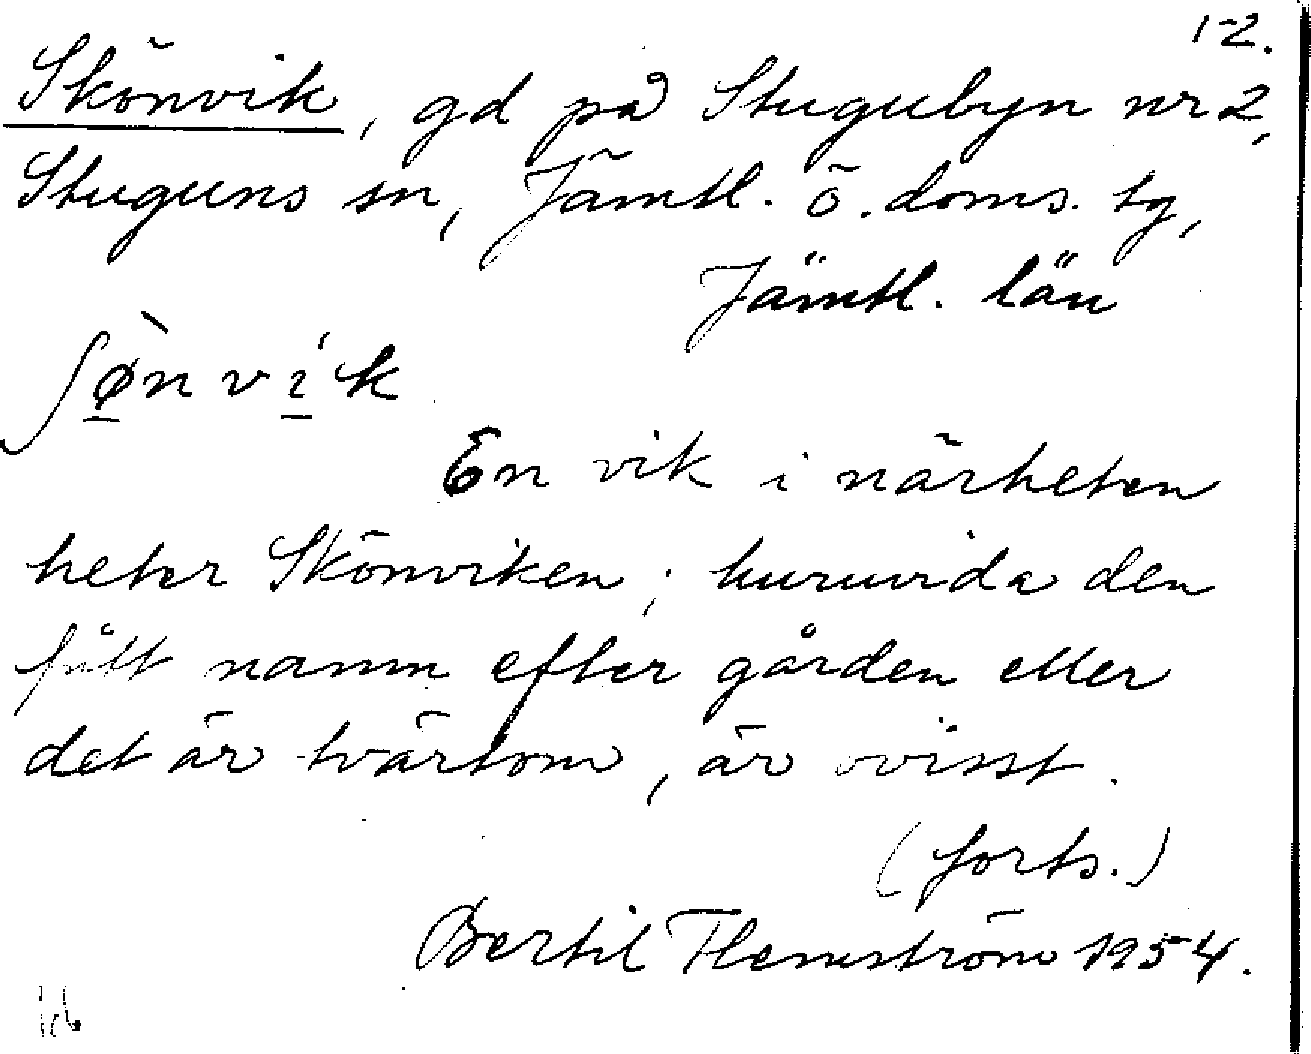 1-2.
Skönvik, gd på Stugubyn nr 2,
Stuguns sn, Jämtl. ö. doms. tg,
Jämtl. län
ʃø̀nvík
En vik i närheten
heter Skönviken; huruvida den
fått namn efter gården eller
det är tvärtom, är ovisst.
(forts.)
Bertil Flemström 1954.